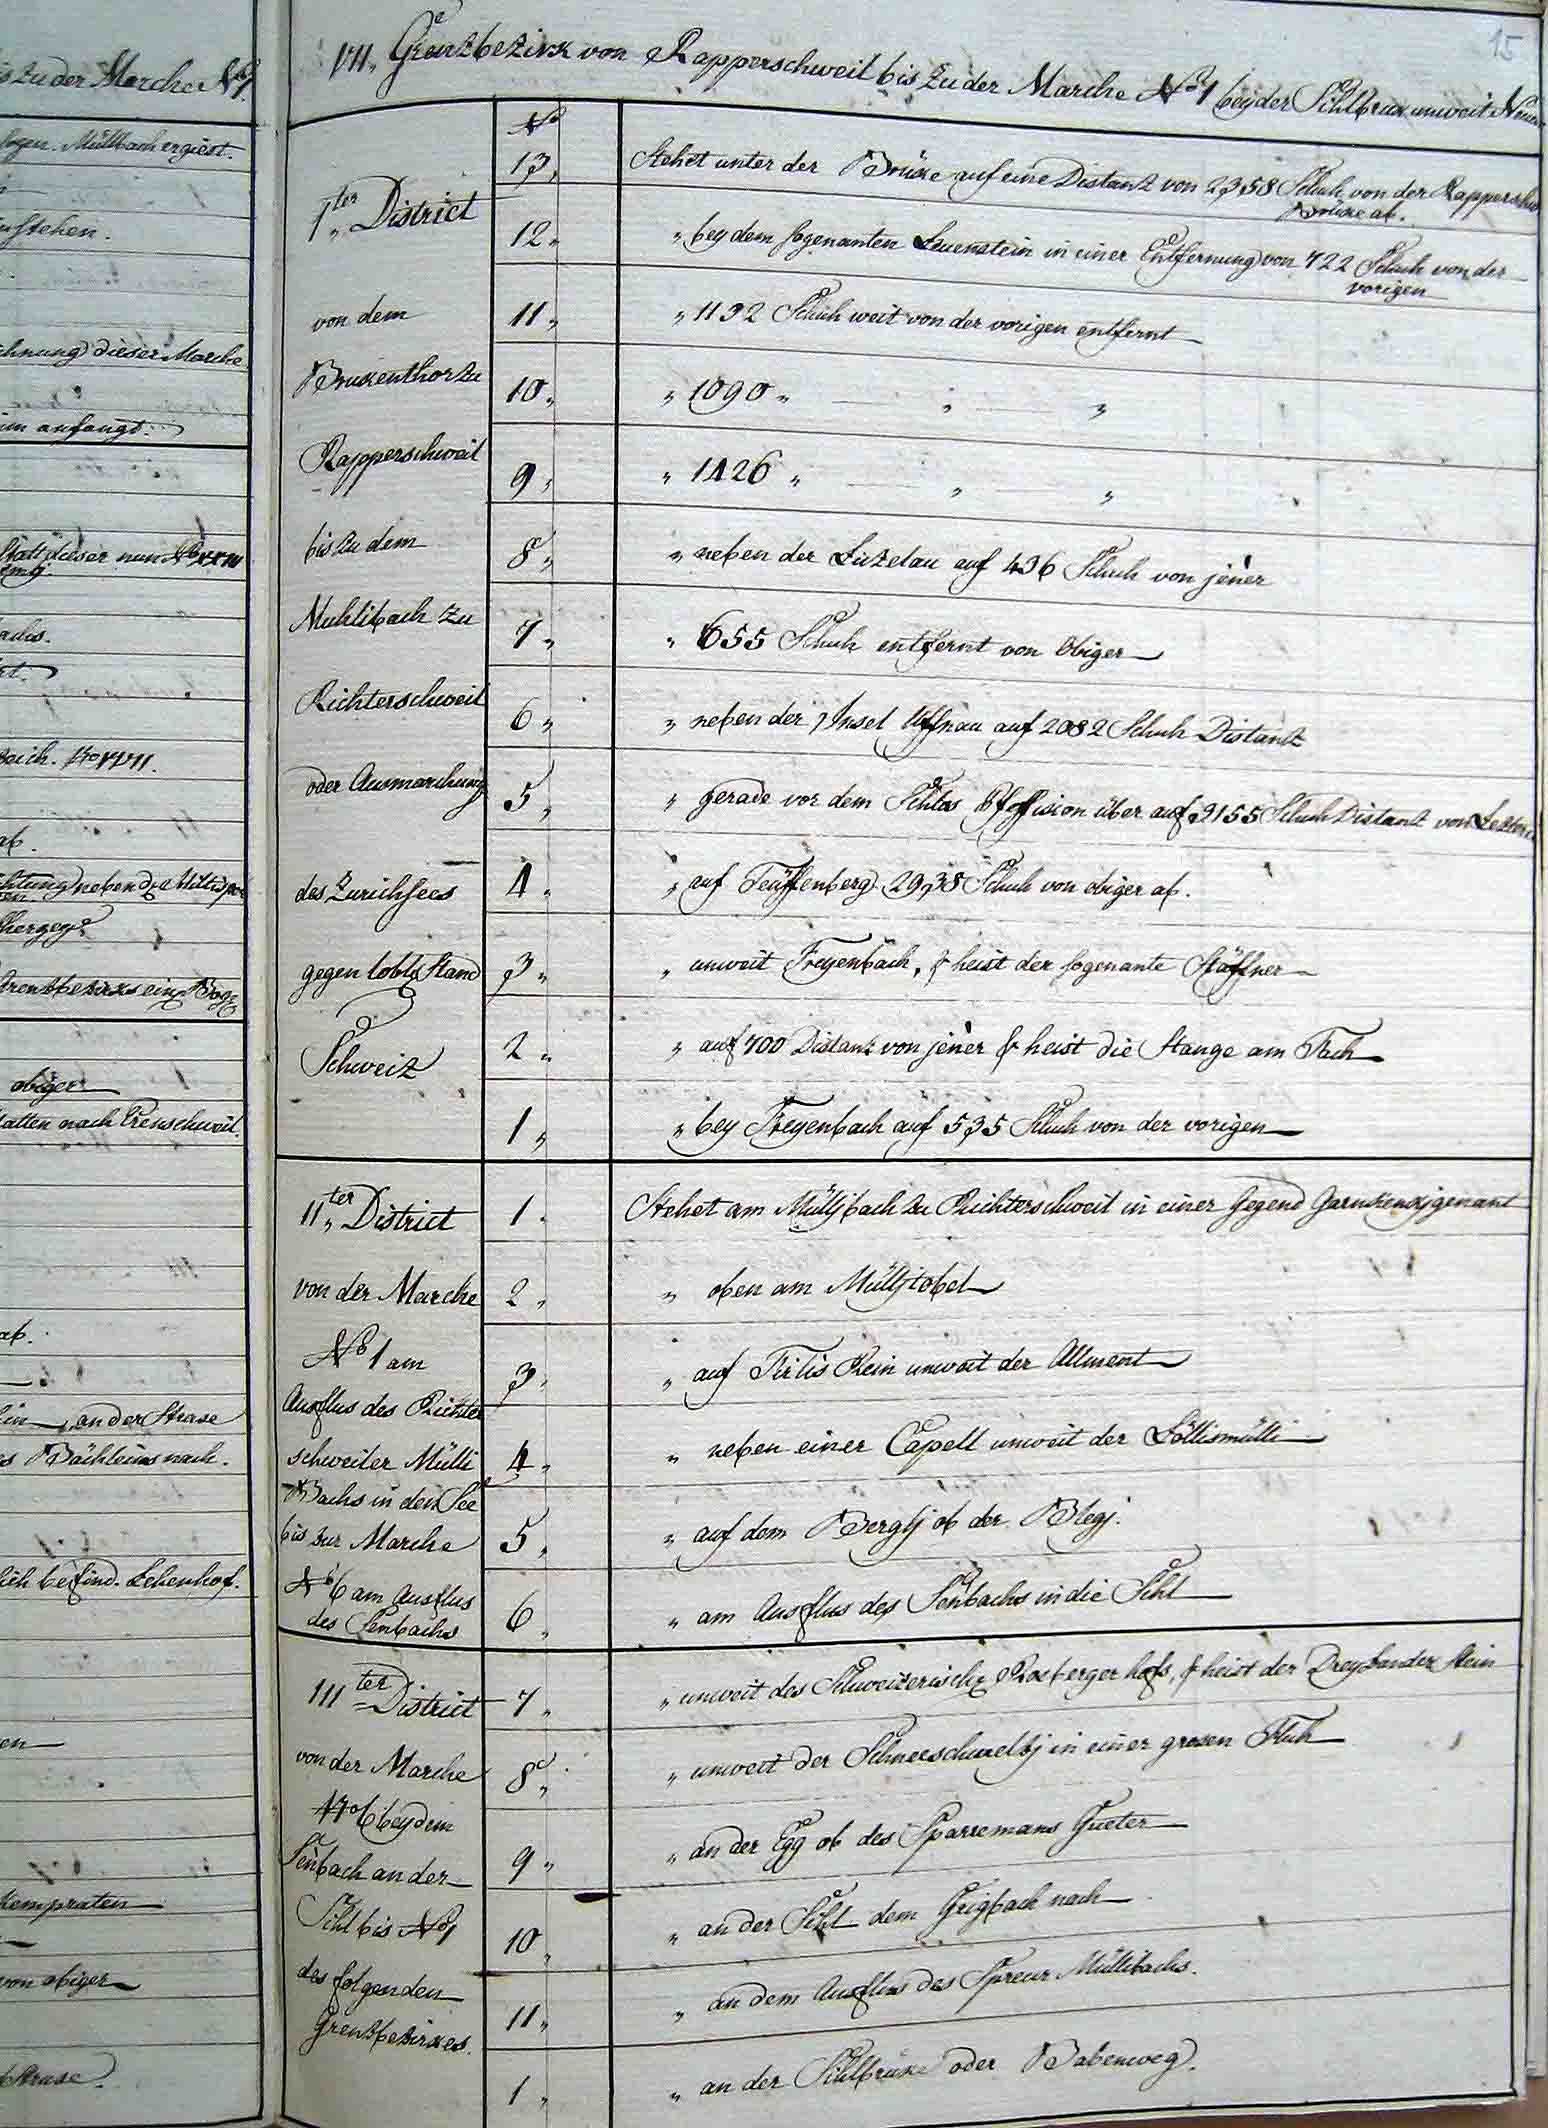 is zu der Marche No 1.
sogen. Müllbach ergiest.
stehen.
chnung dieser Marche
im anfangt.
statt dieser nun
bachs.
ab.
obiger
alten nach
ab.
an der Strase
Bächleins nach.
lich befind. Lehenhof.
Kempraten
von obiger
Strase.
15
VII. Grenzbezirk von Rapperschweil bis zu der Marche No 1 bey der Sihlbruk unweit
No
1ter District
von dem
Brukenthor zu
Rapperschweil
bis zu dem
Muhlibach zu
Richterschweil
oder Ausmarchung
des Zurichsees
gegen lobl. Stand
Schweiz
13. Stehet unter der Brüke auf eine Distanz von 2358 Schuh von der Rappersch
Brüke ab.
12. " bey dem sogenanten Luenstein in einer Entfernung von 722 Schuh von der
vorigen
11. " 1192 Schuh weit von der vorigen entfernt
10. " 1090 " — " — "
9. " 1426 " — " — "
8. " neben der Lüzelau auf 436 Schuh von jener
7. " 655 Schuh entfernt von obiger
6. " neben der Insel Uffnau auf 2082 Schuh Distanz
5. " gerade vor dem Schlos Pfeffikon über auf 9155 Schuh Distanz von
4. " auf Teuffenberg 2938 Schuh von obiger ab.
3. " unweit Freyenbach, & heist der sogenante Stäffner
2. " auf 700 Distanz von jener & heist die Stange am Fach
1. " bey Freyenbach auf 535 Schuh von der vorigen
11ter District
von der Marche
No 1 am
Ausflus des Richter
schweiler Mülli
Bachs in den See
bis zur Marche
No 6 am Ausflus
des Senbachs
1. Stehet am Müllj bach zu Richterschweil in einer Gegend genant
2. " oben am Mülljtobel
3. " auf Tirlis Rein unweit der Allment
4. " neben einer Capell unweit der Söllismülli
5. " auf dem Berglj ob der Blegj.
6. " am Ausflus des Senbachs in die Sihl
111ter District
von der Marche
No 6 bey dem
Senbach an der
Sihl bis No 1
des folgenden
Grenzbezirkes.
7. " unweit des Schweizerische Roseberger hofs, & heist der Dreyländer Stein
8. " unweit der Schneeschmelzj in einer grosen Fluh
9. " an der Egg ob des Sparremans Gueter
10. " an der Sihl dem Grigbach nach
11. " an dem Ausflus des Spreur Müllibachs.
1. " an der Sihlbrüke oder Babenweg.